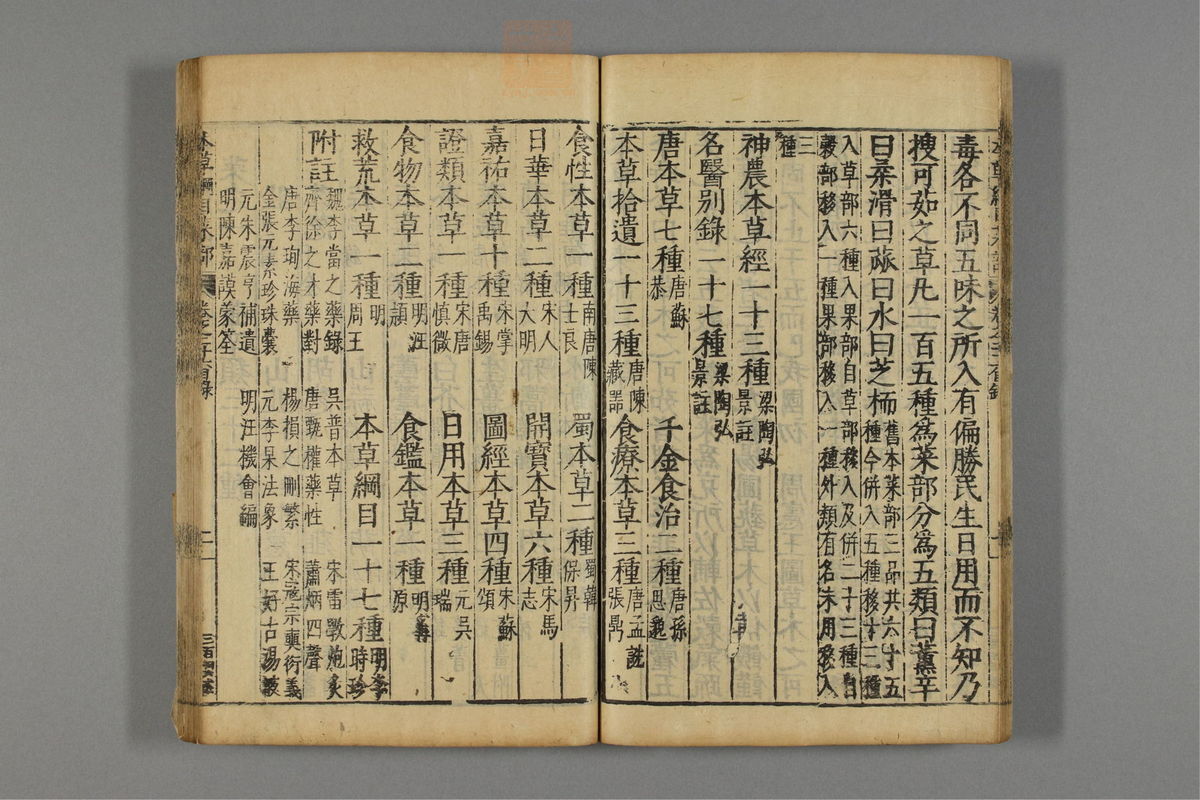 毒各不同五味之所入有偏勝民生日用而不知乃
搜可茹之草凡一百五種為菜部分為五類曰薰辛
曰柔滑曰蓏曰水曰芝栭舊本菜部三品共六十五種今併入五種移十三種
入草部六種入果部自草部移入及併二十三種自穀部移入一種果部移入一種外類有名未用移入
三種
神農本草經一十三種梁陶弘景註
名醫別錄一十七種梁陶弘景註
唐本草七種唐蘇恭 千金食治二種唐孫思邈
本草拾遺一十三種唐陳藏器 食療本草三種唐孟詵張鼎
食性本草一種南唐陳士良 蜀本草二種蜀韓保昇
日華本草二種宋人大明 開寶本草六種宋馬志
嘉祐本草十種宋掌禹錫 圖經本草四種宋蘇頌
證類本草一種宋唐慎微 日用本草三種元吳瑞
食物本草二種明汪穎 食鑑本草一種明甯原
救荒本草一種明周王 本草綱目一十七種明李時珍
附註魏李當之藥錄 吳普本草 宋雷斆炮炙
齊徐之才藥對 唐甄權藥性 蕭炳四聲
唐李珣海藥 楊損之刪繁 宋寇宗奭衍義
金張元素珍珠囊 元李杲法象 王好古湯液
元朱震亨補遺 明汪機會編
明陳嘉謨蒙筌
本草綱目菜部 卷之二十六目錄 二